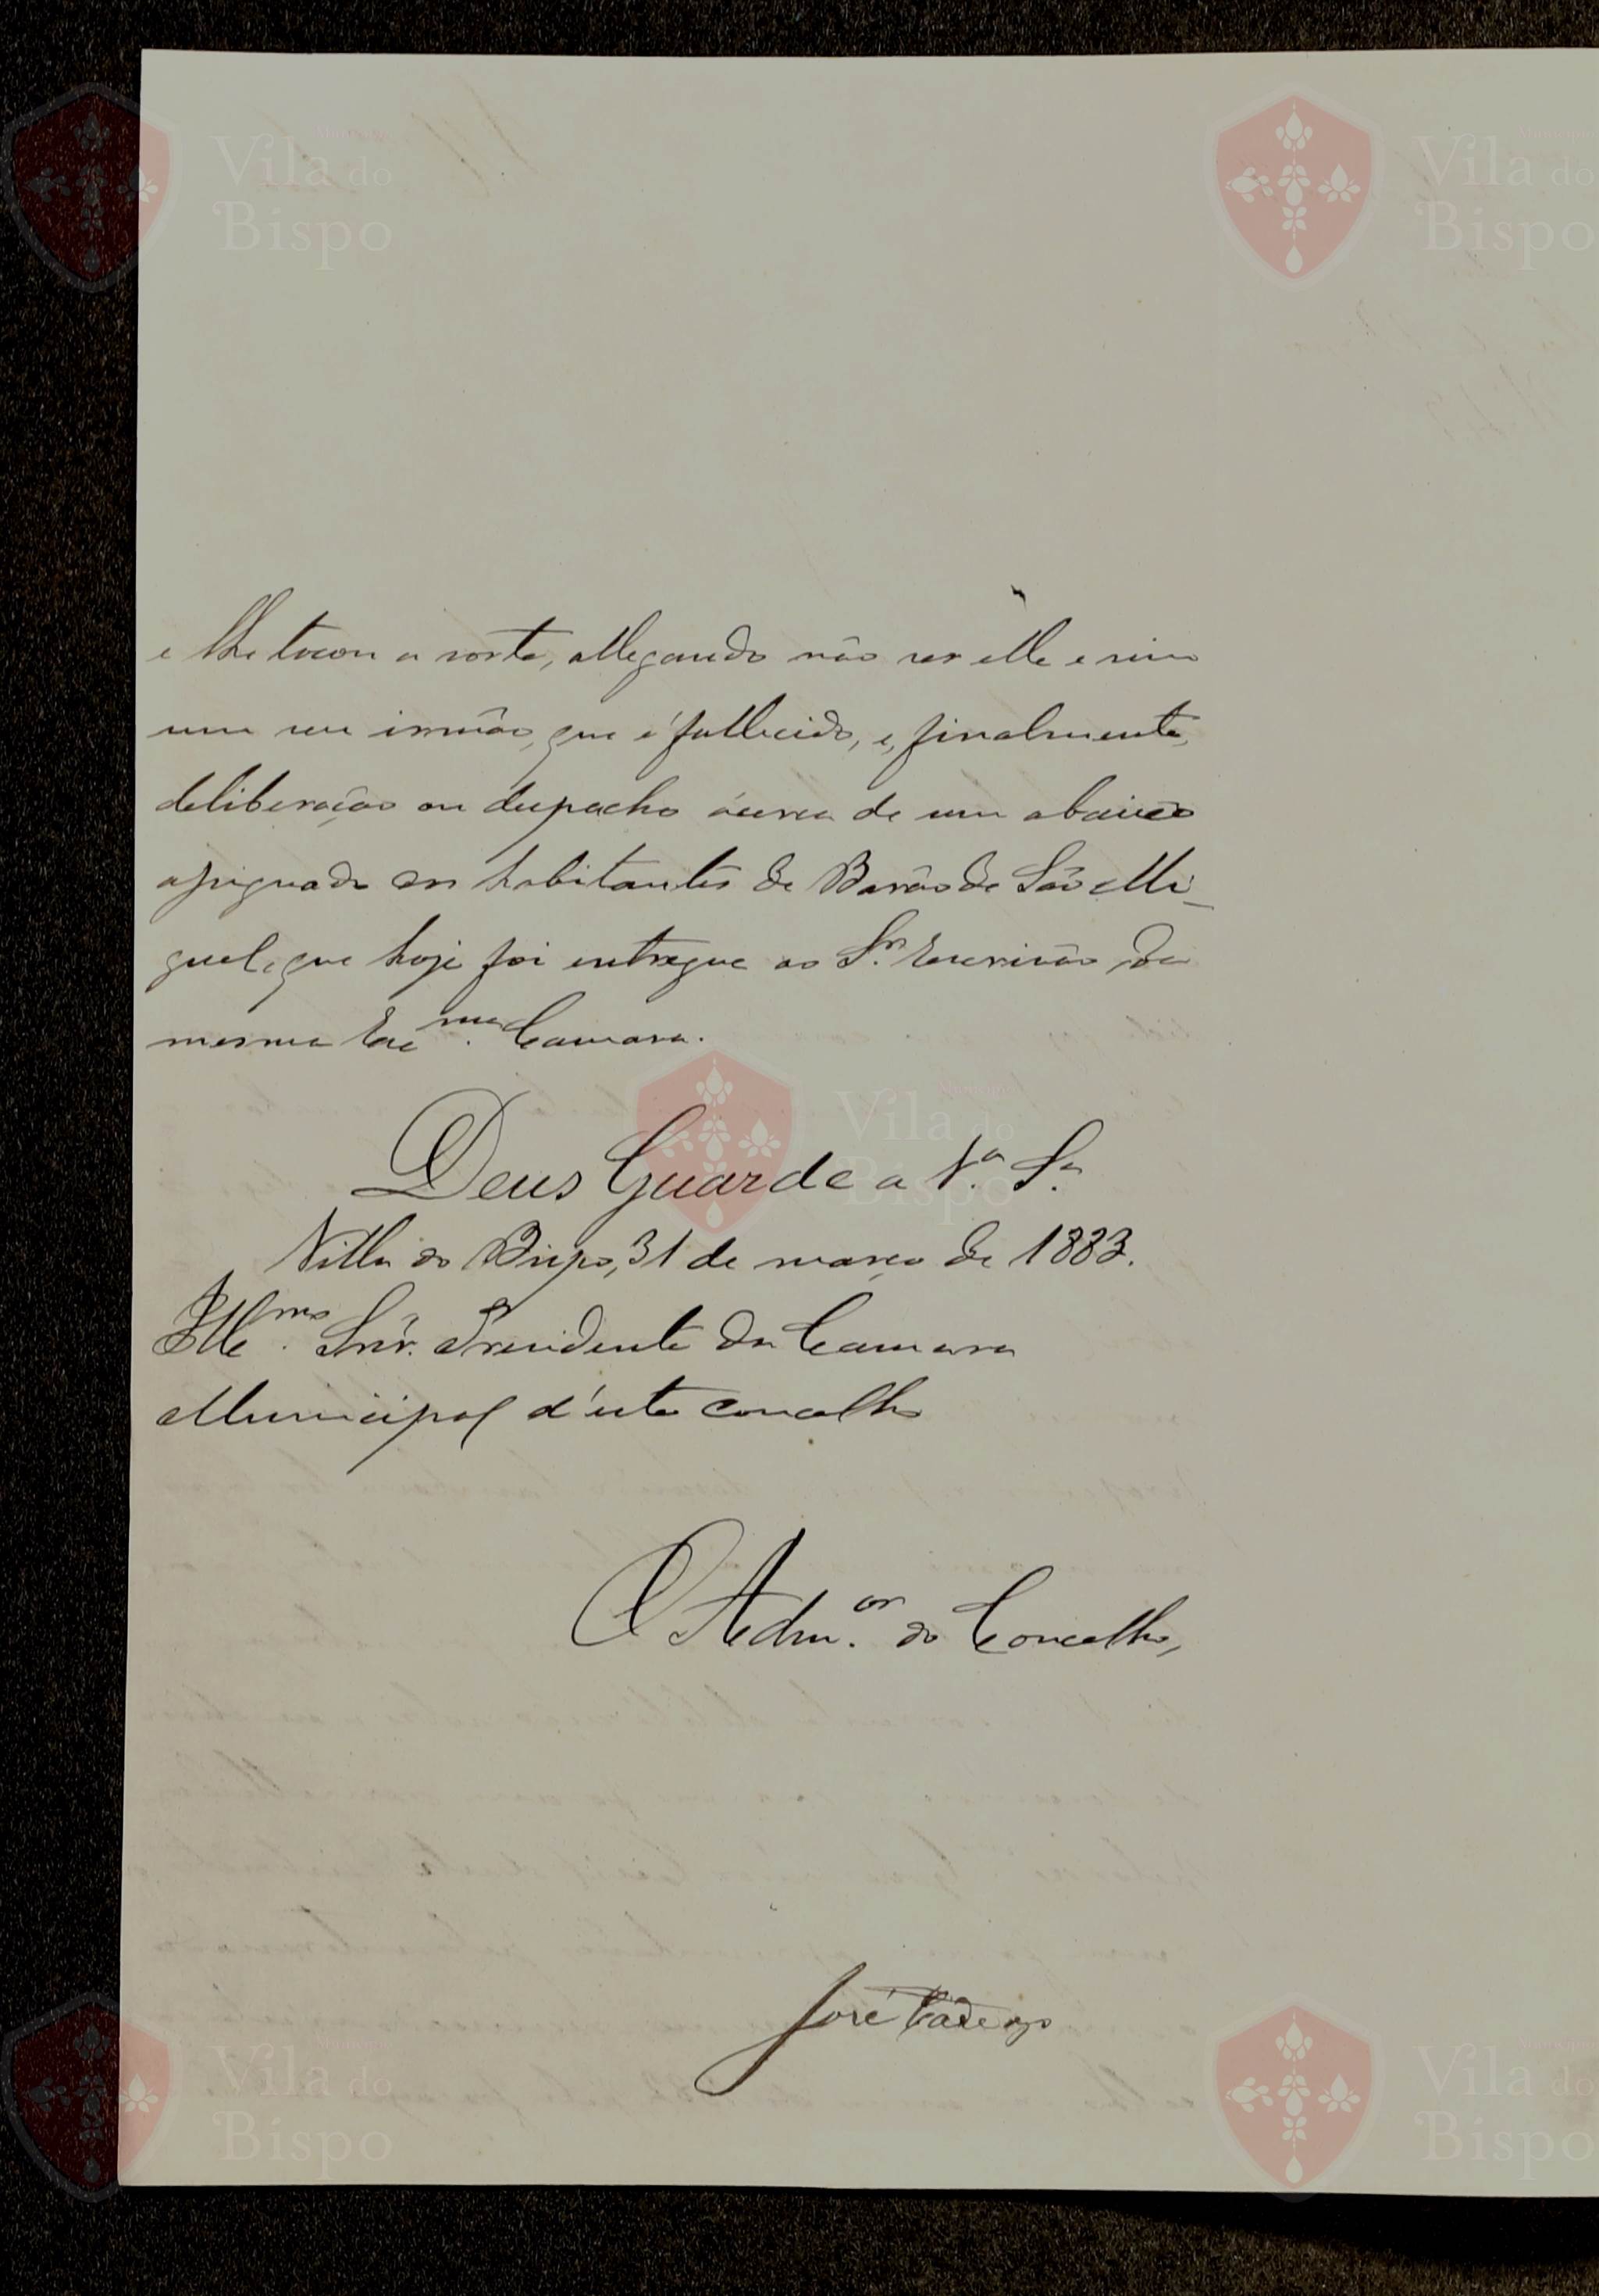 e lhe tocou a sorte, allegando não ser elle e sim
um seu irmão, que é fallecido, e, finalmente,
deliberação ou despacho ácerca de um abaixo
assignado dos habitantes de Barão de São Mi-
guel, que hoje foi entregue ao Sr. Escrivão da
mesma Exma. Camara.
Deus Guarde a V.a S.a
Villa do Bispo, 31 de março de 1883.
Illmo. Snr. Presidente da Camara
Municipal d'este concelho
O Admor. do Concelho,
José
Município
Vila do
Bispo
Município
Vila do
Bispo
Município
Vila do
Bispo
Município
Vila do
Bispo
Município
Vila do
Bispo